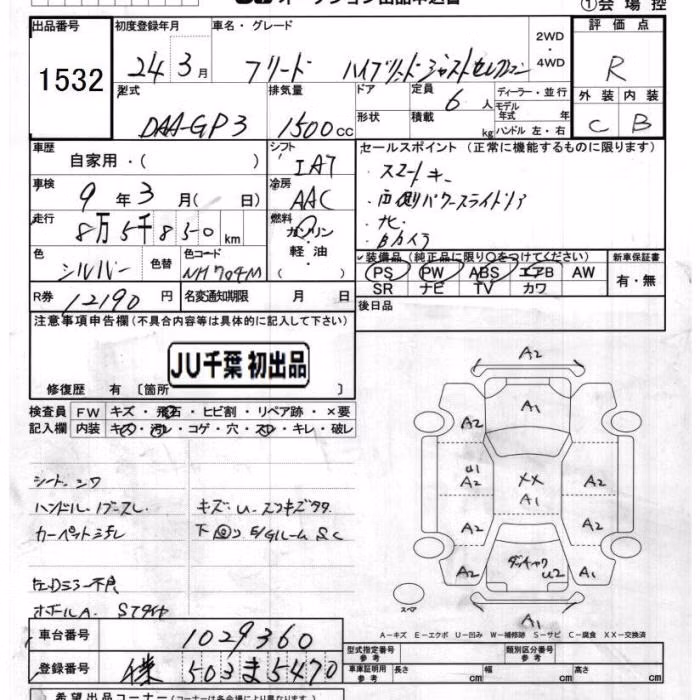 ①会場控
出品番号
1532
初度登録年月
24年3月
車名・グレード
フリード ハイブリッドジャストセレクション
2WD
・
4WD
評価点
R
外装 内装
C B
型式
DAA-GP3
排気量
1500cc
ドア
定員
6人
形状
積載
kg
ディーラー・並行
モデル
年式 年
ハンドル 左・右
車歴
自家用・( )
シフト
IAT
車検
9年3月( 日)
冷房
AAC
走行
8万5千850km
燃料
ガソリン
・
軽油
( )
色
シルバー
色替
色コード
NH704M
R券
12190円
名変通知期限 月 日
セールスポイント (正常に機能するものに限ります)
・スマートキー
・両側パワースライドドア
・ナビ
・Bカメラ
装備品(純正品に限り○をつけてください)
PS PW ABS エアB AW
SR ナビ TV カワ
新車保証書
有・無
後日品
注意事項申告欄(不具合内容等は具体的に記入して下さい)
JU千葉 初出品
修復歴 有〔箇所 〕
検査員
記入欄
FW キズ・飛石・ヒビ割・リペア跡・×要
内装 キズ・汚レ・コゲ・穴・スレ・キレ・破レ
シートシワ
ハンドル・ノブスレ
カーペットヨゴレ
キズ U
下回り E/Gルーム S C
左Dミラー不良
A2
A2
A1
U1
A2
A2
XX
A1
A2
A2
A2
U2
A1
A1
スペア
A-キズ E-エクボ U-凹み W-補修跡 S-サビ C-腐食 XX-交換済
車台番号
1029360
登録番号
503ま5470
型式指定番号
参考
類別区分番号
参考
車庫証明用
参考
長さ cm 幅 cm 高さ cm
希望出品コーナー(コーナー名は各会場により異なります)